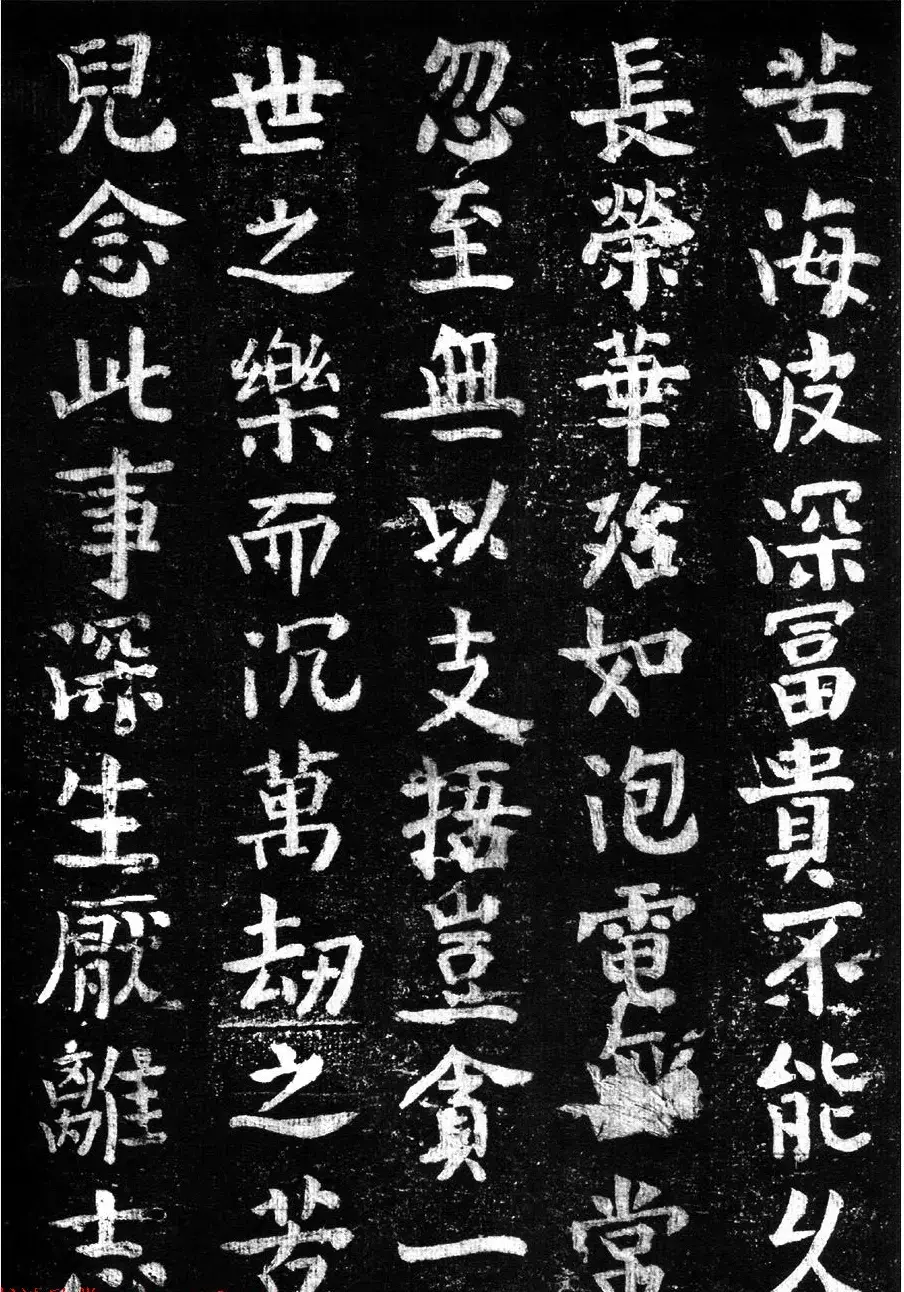 苦海波深富貴不能久
長榮華殆如泡電無常
忽至無以支捂豈貪一
世之樂而沉萬劫之苦
兒念此事深生厭離志